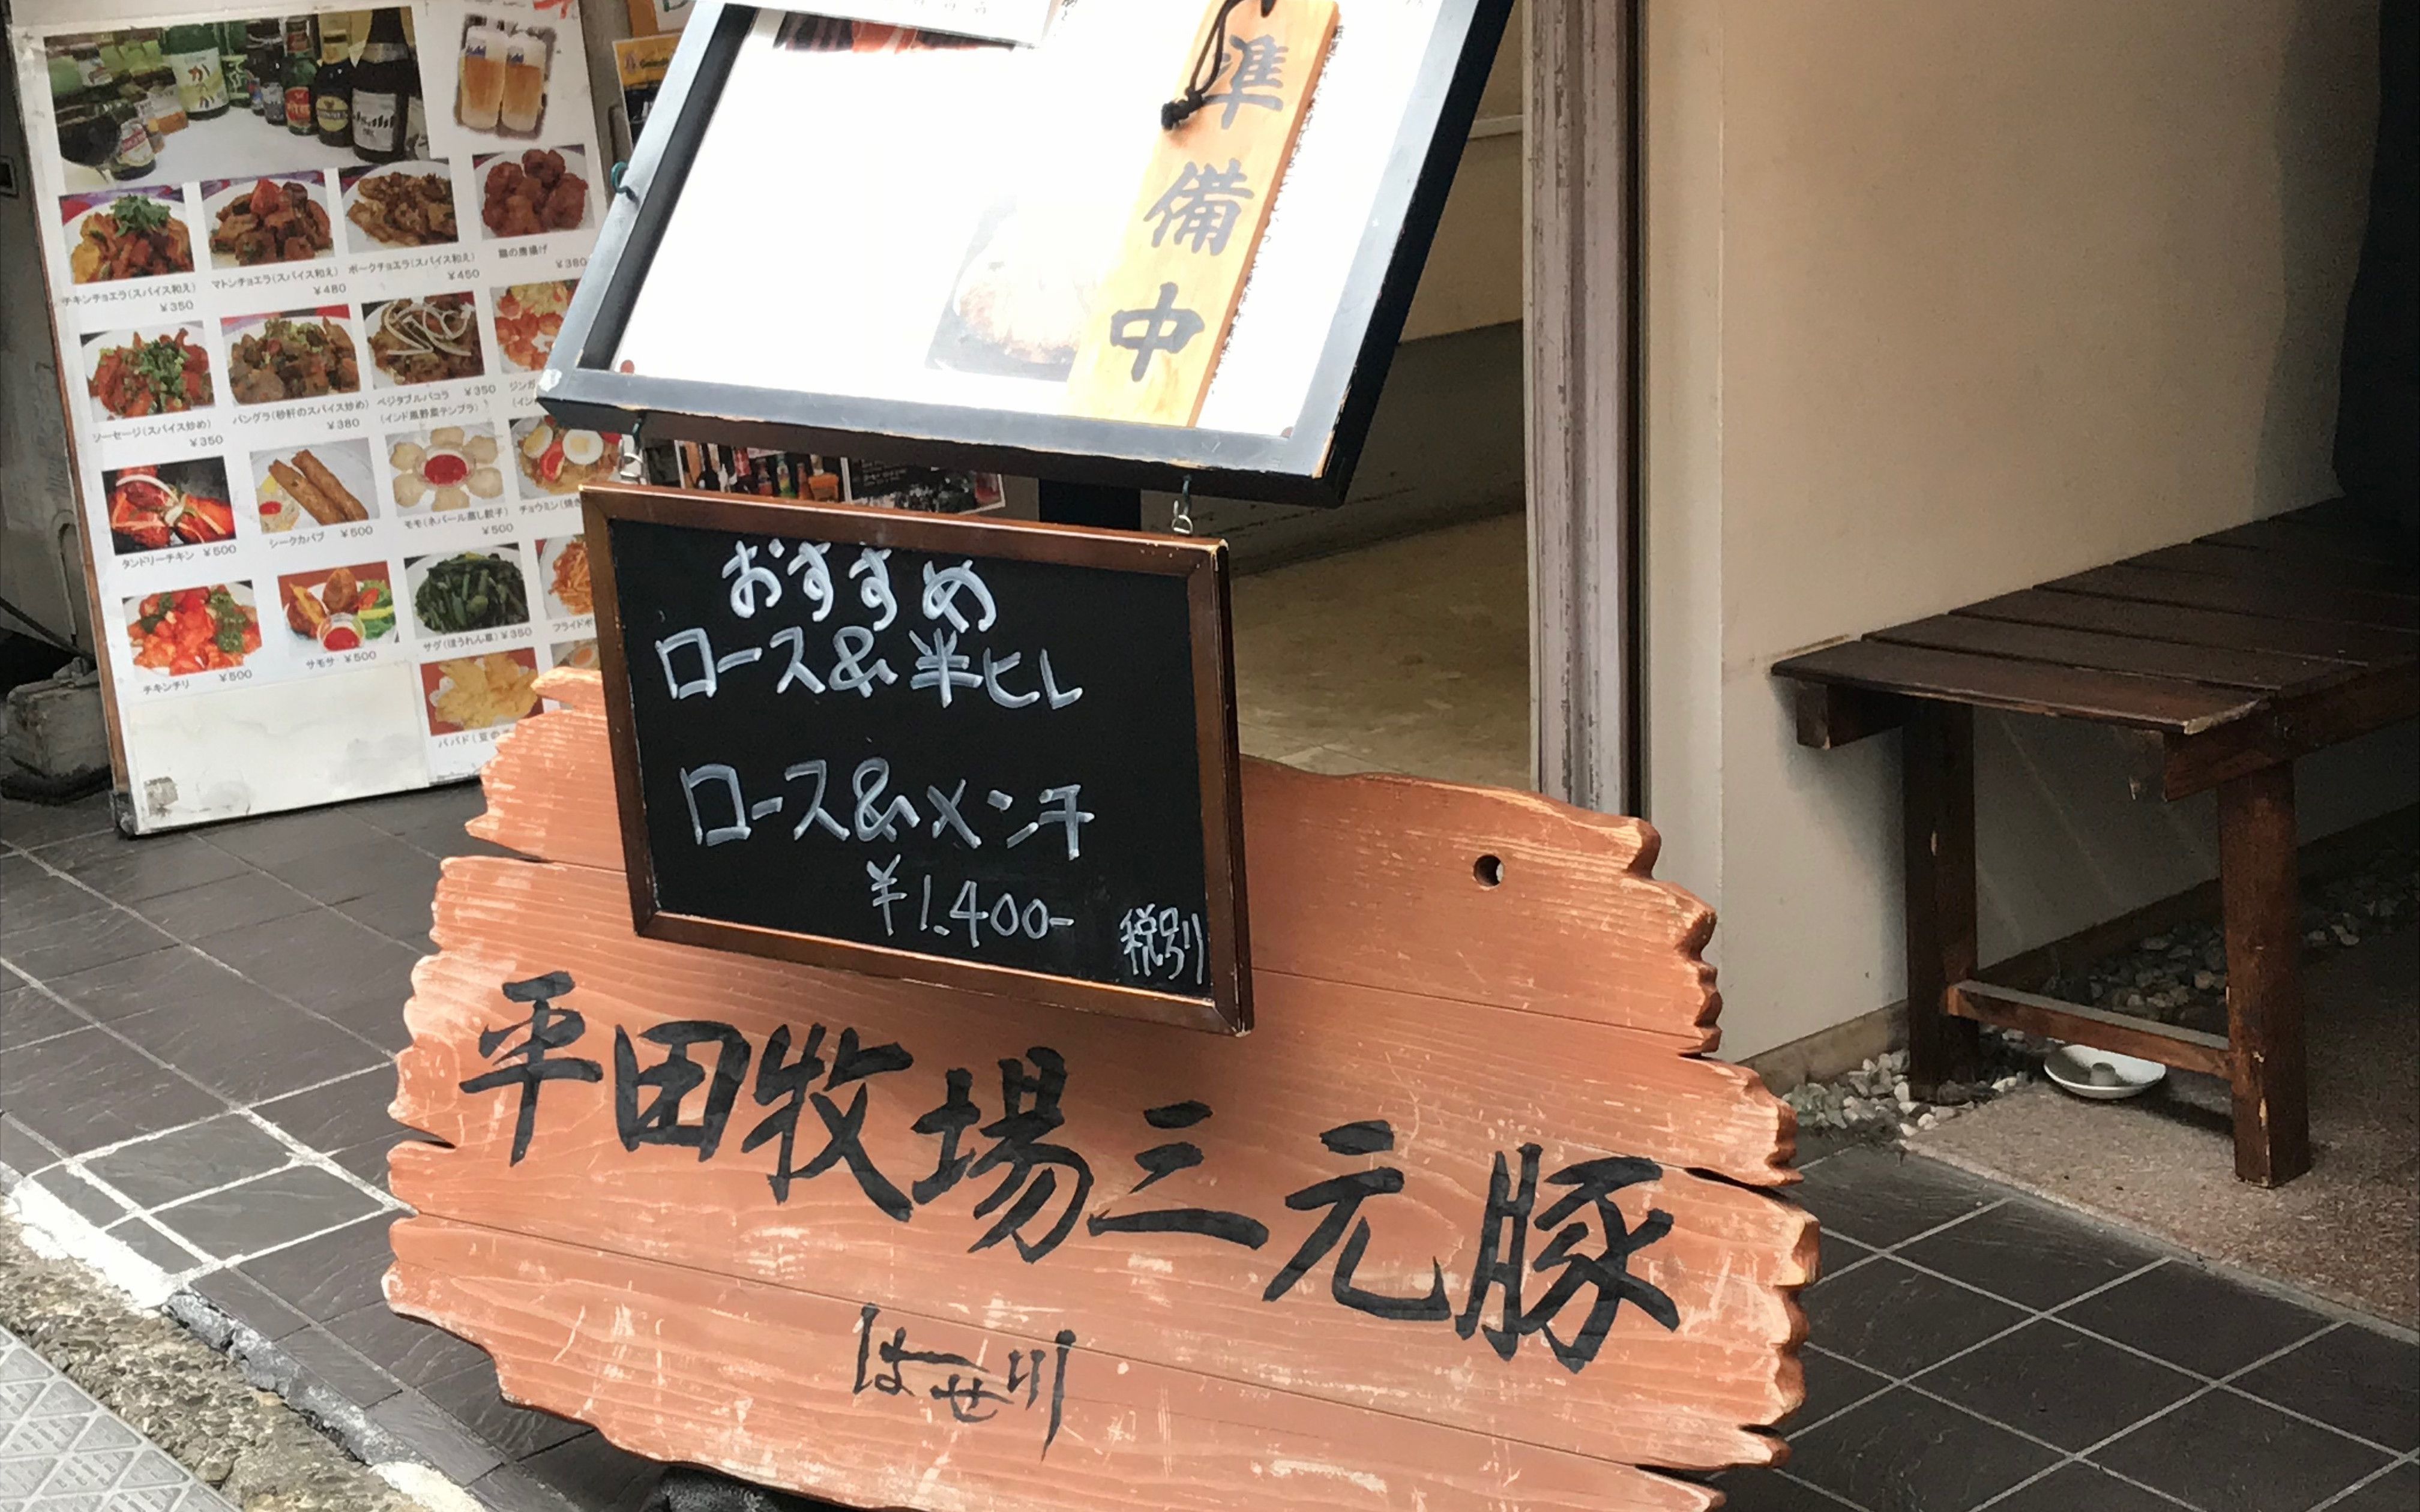 準備中
おすすめ
ロース&半ヒレ
ロース&メンチ
¥1.400-
税別
平田牧場三元豚
はせ川
チキンチョエラ(スパイス和え)
¥350
マトンチョエラ(スパイス和え)
¥480
ポークチョエラ(スパイス和え)
¥450
鶏の唐揚げ
¥380
ソーセージ(スパイス炒め)
¥350
パングラ(砂肝のスパイス炒め)
¥380
ベジタブルパコラ ¥350
(インド風野菜テンプラ)
タンドリーチキン ¥500
シークカバブ ¥500
モモ(ネパール蒸し餃子)
¥500
チョウミン(焼き
チキンチリ ¥500
サモサ ¥500
サグ(ほうれん草) ¥350
フライドポ
パパド(豆の